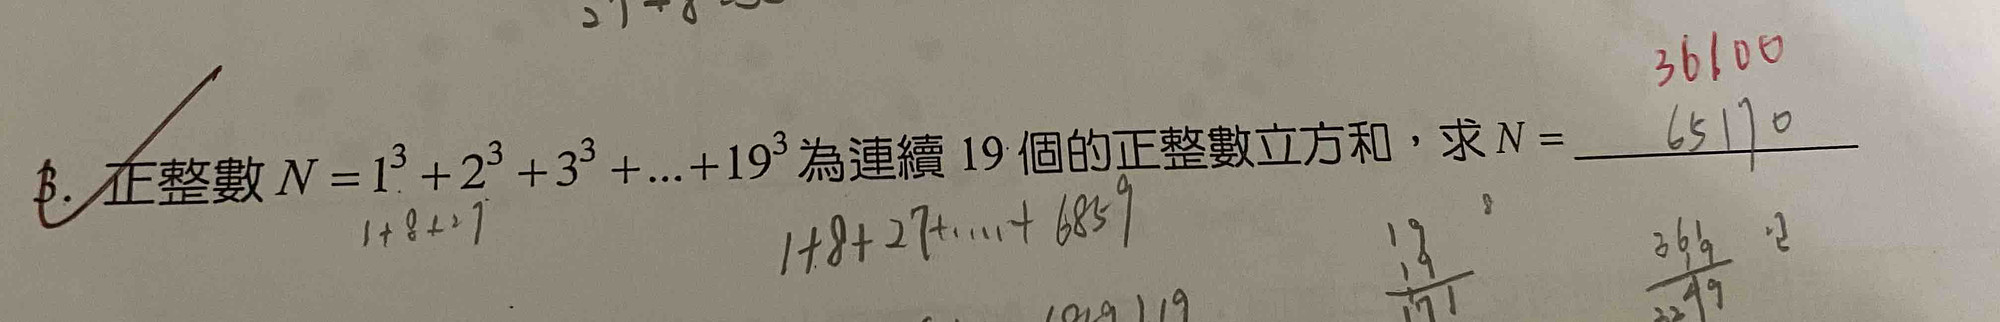 36100
B. 正整數 N = 1³ + 2³ + 3³ + ... + 19³ 為連續 19 個的正整數立方和，求 N = 65170
1+8+27
1+8+27+.....+ 6859
19
19
171
361
19